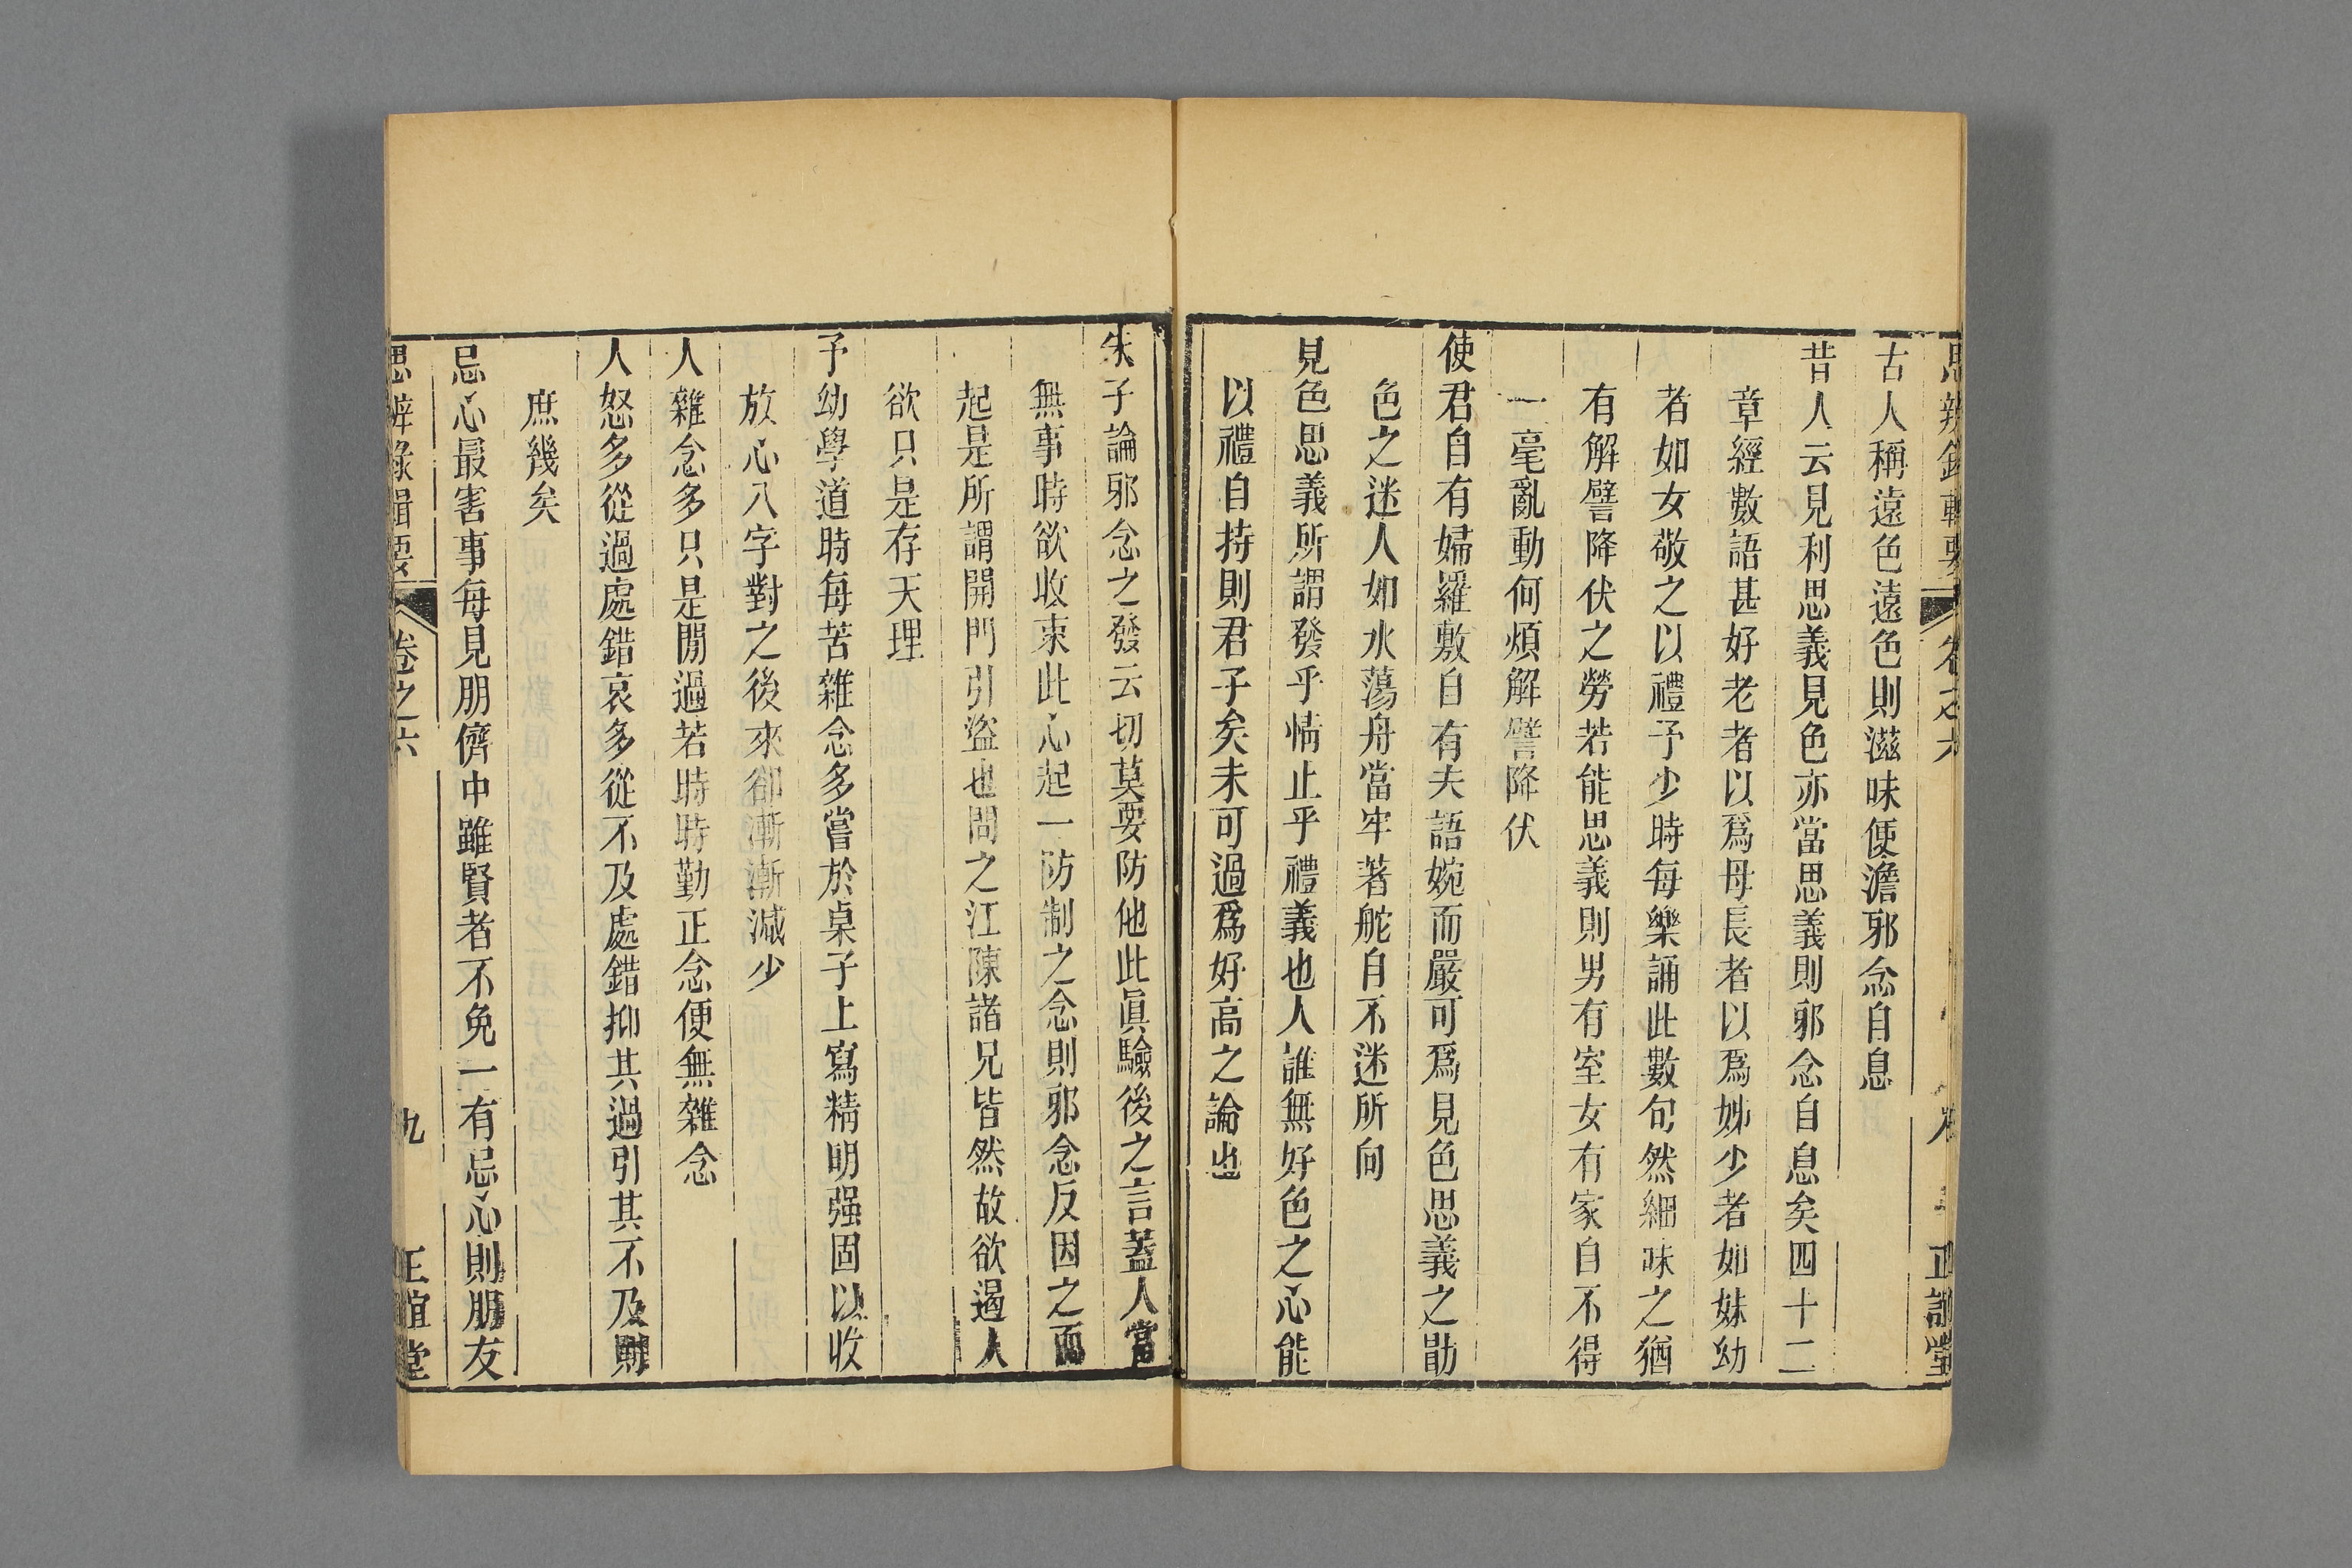 古人稱遠色遠色則滋味便澹邪念自息
昔人云見利思義見色亦當思義則邪念自息矣四十二
章經數語甚好老者以爲母長者以爲姊少者如妹幼
者如女敬之以禮予少時每樂誦此數句然細味之猶
有解譬降伏之勞若能思義則男有室女有家自不得
一毫亂動何煩解譬降伏
使君自有婦羅敷自有夫語婉而嚴可爲見色思義之勖
色之迷人如水蕩舟當牢著舵自不迷所向
見色思義所謂發乎情止乎禮義也人誰無好色之心能
以禮自持則君子矣未可過爲好高之論也
朱子論邪念之發云切莫要防他此眞驗後之言蓋人當
無事時欲收束此心起一防制之念則邪念反因之而
起是所謂開門引盜也問之江陳諸兄皆然故欲遏人
欲只是存天理
予幼學道時每苦雜念多嘗於桌子上寫精明强固以收
放心八字對之後來卻漸漸減少
人雜念多只是閒過若時時勤正念便無雜念
人怒多從過處錯哀多從不及處錯抑其過引其不及則
庶幾矣
忌心最害事每見朋儕中雖賢者不免一有忌心則朋友
思辨錄輯要 卷之六 九 正誼堂